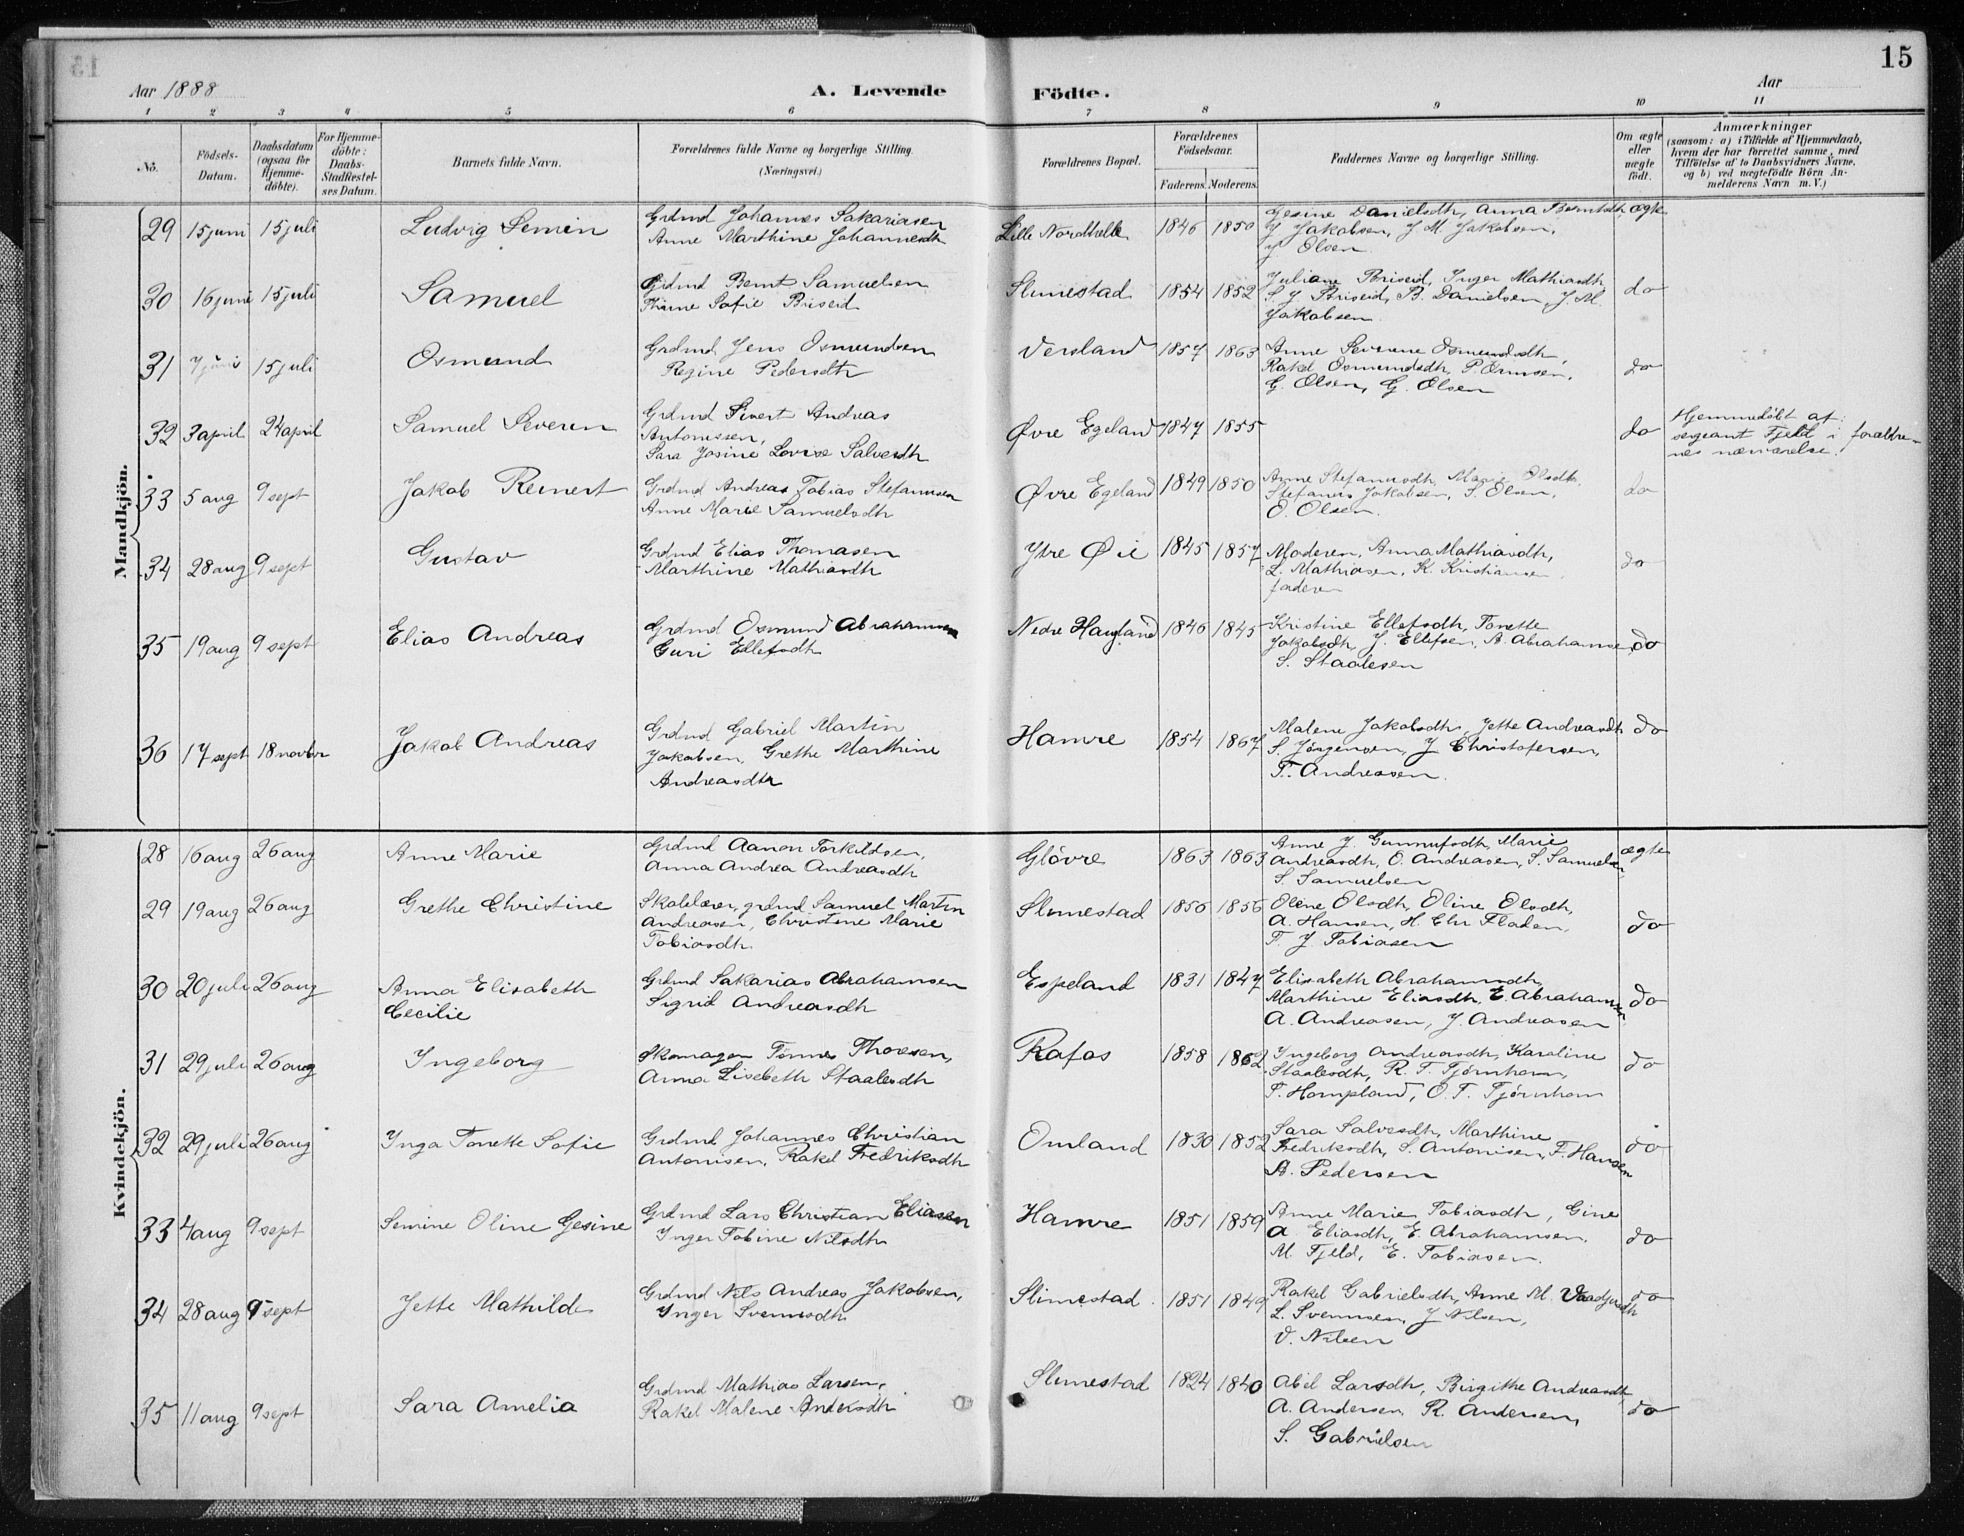 15
Aar 1888
A. Levende Födte.
Aar
1 2 3 4 5 6 7 8 9 10 11
No.
Födsels-Datum.
Daabsdatum (ogsaa för Hjemme-döbte).
For Hjemme-döbte: Daabs-Stadfæstel-ses Datum.
Barnets fulde Navn.
Forældrenes fulde Navne og borgerlige Stilling. (Næringsvei.)
Forældrenes Bopæl.
Forældrenes Födselsaar.
Faderens. Moderens.
Faddernes Navne og borgerlige Stilling.
Om ægte eller uægte födt.
Anmærkninger
(saasom: a) i Tilfælde af Hjemmedaab,
hvem der har forrettet samme, med
Tilföielse af to Daabsvidners Navne,
og b) ved uægtefödte Börn An-
melderens Navn m. V.)
Mandkjön.
29 15 juni 15 juli Ludvig Semin Grdmd Johannes Sakariasen
Anne Marthine Johannesdtr Lille Nordhelle 1846 1850 Gesine Danielsdtr, Anna Berntsdtr, ægte
Jakobsen, J M. Jakobsen,
J Olsen
30 16 juni 15 juli Samuel Grdmd Bernt Samuelsen
Thine Sofie Briseid Slimestad 1854 1852 Juliane Briseid, Inger Mathiasdtr
S. J Briseid, B. Danielsen, J. M.
Jakobsen do
31 7 juni 15 juli Osmund Grdmd Jens Osmundsen
Regine Pedersdtr Versland 1857 1863 Anne Severine Osmundsdtr,
Rakel Osmundsdtr, P. Ormsen,
G. Olsen, G. Olsen do
32 3 april 24 april Samuel Severin Grdmd Sivert Andreas
Antonissen,
Sara Josine Lovise Salvesdtr Øvre Egeland 1847 1855 do Hjemmedöbt af
sergeant Fjeld i forældre-
nes nærværelse.
33 5 aug 9 sept Jakob Reinert Grdmd Andreas Tobias Stefanusen
Anne Marie Samuelsdtr Øvre Egeland 1849 1850 Anne Stefanusdtr, Marie Olsdtr,
Stefanus Jakobsen, S. Olsen,
O. Olsen. do
34 28 aug 9 sept Gustav Grdmd Elias Thomasen
Marthine Mathiasdtr Ytre Øie 1845 1857 Moderen, Anna Mathiasdtr,
L. Mathiasen, K. Kristiansen,
faderen do
35 19 aug 9 sept Elias Andreas Grdmd Osmund Abrahamsen
Guri Ellefsdtr Nedre Haugland 1846 1845 Kristine Ellefsdtr, Tonette
Jakobsdtr, J. Ellefsen, A. Abrahamsen,
S. Staalesen do
36 17 sept 18 novbr Jakob Andreas Grdmd Gabriel Martin
Jakobsen, Grethe Marthine
Andreasdtr Hamre 1854 1867 Malene Jakobsdtr, Jette Andreasdtr
S. Jörgensen, J Christofersen,
T. Andreasen. do
Kvindekjön.
28 16 aug 26 aug Anne Marie Grdmd Aanon Torkildsen,
Anna Andrea Andreasdtr Glövre 1863 1863 Anne J. Gunnufsdtr, Marie
Andreasdtr, O. Andreasen, S. Samuelsen,
S. Samuelsen ægte
29 19 aug 26 aug Grethe Christine Skolelærer, grdmd Samuel Martin
Andreasen, Christine Marie
Tobiasdtr. Slimestad 1856 1856 Olene Olsdtr, Oline Olsdtr,
A. Hansen, H. Chr Fladen,
T. J Tobiasen do
30 20 juli 26 aug Anna Elisabeth
Cecilie Grdmd Sakarias Abrahamsen
Sigrid Andreasdtr Espeland 1831 1847 Elisabeth Abrahamsdtr,
Marthine Eliasdtr, E. Abrahamsen,
A. Andreasen, J. Andreasen do
31 29 juli 26 aug Ingeborg Skomager Tönnes Thoresen,
Anna Lisebeth Staalesdtr Rafos 1858 1862 Ingeborg Andreasdtr, Karoline
Staalesdtr, R. T. Tjörnhom,
T. Hompland, O. T. Tjörnhom do
32 29 juli 26 aug Inga Tonette Sofie Grdmd Johannes Christian
Antonisen, Rakel Fredriksdtr Omland 1830 1852 Sara Salvesdtr, Marthine
Fredriksdtr, S. Antonisen, F. Hansen
A. Pedersen do
33 4 aug 9 sept Semine Oline Gesine Grdmd Lars Christian Eliasen
Inger Tobine Nilsdtr Hamre 1851 1859 Anne Marie Tobiasdtr, Gine
A. Eliasdtr, E. Abrahamsen,
M. Fjeld, E. Tobiasen. do
34 28 aug 9 sept Jette Mathilde Grdmd Nils Andreas Jakobsen,
Inger Svennsdtr Slimestad 1851 1849 Rakel Gabrielsdtr, Anne M.
L. Svennsen, J Nilsen,
V. Nilsen do
35 11 aug 9 sept Sara Amelia Grdmd Mathias Larsen,
Rakel Malene Andersdtr Slimestad 1824 1840 Abel Larsdtr, Birgithe Andreasdtr,
A. Andersen, R. Andersen,
S. Gabrielsen do